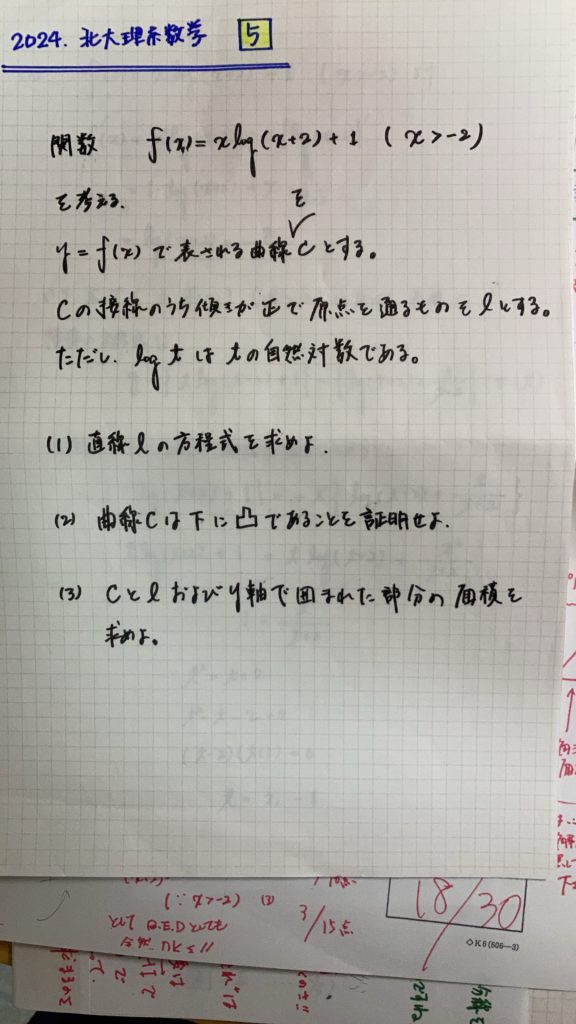 2024. 北大理系数学 5
関数 f(x)= x log(x+2)+1 (x>-2)
を考える.
y=f(x) で表される曲線をCとする。
Cの接線のうち傾きが正で原点を通るものをlとする。
ただし. log t は tの自然対数である。
(1) 直線 l の方程式を求めよ.
(2) 曲線Cは下に凸であることを証明せよ.
(3) Cとlおよびy軸で囲まれた部分の面積を
求めよ。
(∵ x>-2) (3)
3/15点
18/30
◇K6(506-3)